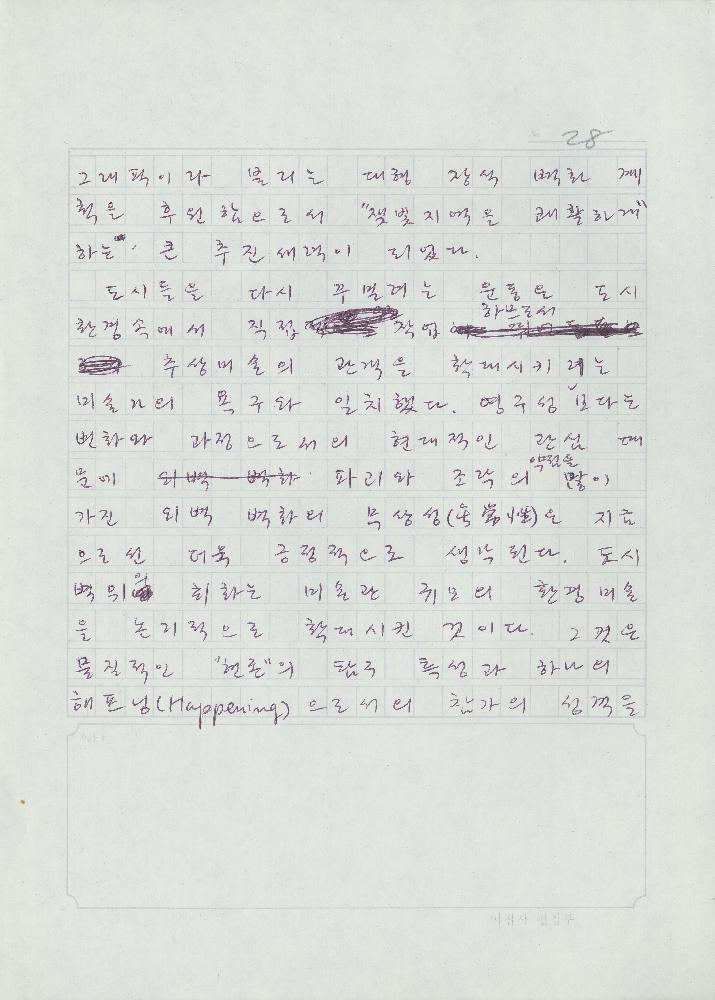 28
그래픽이라 불리는 대형 장식 벽화 계
획을 후원함으로서 "잿빛지역을 쾌활하게"
하는 큰 추진세력이 되었다.
도시들을 다시 꾸밀려는 운동은 도시
하므로서
환경속에서 직접 작업
추상미술의 관객을 확대시키려는
미술가의 욕구와 일치했다. 영구성보다는
변화와 과정으로서의 현대적인 관심 때
문에 외벽 벽화 파괴와 조락의 약점을 많이
가진 외벽 벽화의 무상성(無常性)은 지금
으로선 더욱 긍정적으로 생각된다. 도시
벽위의 회화는 미술관 규모의 환경미술
을 논리적으로 확대시킨 것이다. 그것은
물질적인 "현존"의 탐구 특성과 하나의
해프닝(Happening)으로서의 참가의 성격을